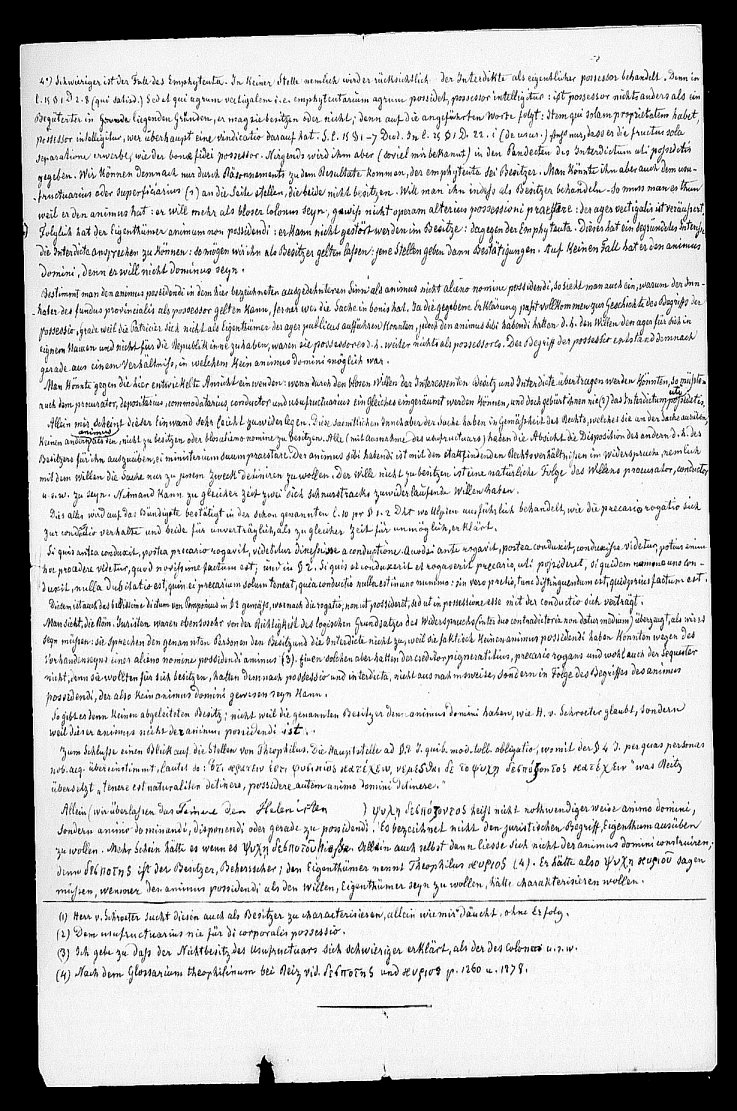 4°) Schwieriger ist der Fall des Emphyteuta. In keiner Stelle nemlich wird er rücksichtlich der Interdikte als eigentlicher possessor behandelt. Denn in
l. 15 § 1 D 2. 8 (qui satisd.) Sed et qui agrum vectigalem i. e. emphyteutarium agrum possidet, possessor intelligitur: ist possessor nichts anders als ein
Begüterter in Grunde liegenden Gründen, er mag sie besitzen oder nicht; denn auf die angeführten Worte folgt: Item qui solam proprietatem habet,
possessor intelligitur, wer überhaupt eine vindicatio darauf hat. S. l. 15 § 1-7 Dict. In l. 25 § 1 D. 22. 1 (de usur.) muss nur, dass er die fructus sola
separatione erwerbe, wie der bonae fidei possessor. Nirgends wird ihm aber (soviel mir bekannt) in den Pandecten des Interdictum uti possidetis
gegeben. Wir können demnach nur durch Räsonnements zu dem Resultate kommen, der emphyteuta sei Besitzer. Man könnte ihn aber auch dem usu-
fructuarius oder superficiarius (2) an die Seite stellen, die beide nicht besitzen. Will man ihn indess als Besitzer behandeln - so muss man es thun
weil er den animus hat: er will mehr als bloser colonus seyn, gewiss nicht operam alterius possessioni praestare: der ager vectigalis ist veräussert.
Folglich hat der Eigenthümer animum non possidendi: er kann nicht gestört werden im Besitze: dagegen der Emphyteuta. Dieser hat ein gegründetes Interesse
die Interdicte ansprechen zu können: so mögen wir ihn als Besitzer gelten lassen: jene Stellen geben dann Bestätigungen. Auf keinen Fall hat er des animus
domini, denn er will nicht dominus seyn.
Bestimmt man den animus possidendi in dem hier bezeichneten ausgedehnteren Sinn als animus nicht alieno nomine possidendi, so sieht man auch ein, warum der Inn-
haber des fundus provincialis als possessor gelten kann, ferner wer die Sache in bonis hat. Ja die gegebene Erklärung passt vollkommen zur Geschichte des Begriffs der
possessio, grade weil die Patricier sich nicht als Eigenthümer des ager publicus aufführen konnten, jedoch den animus sibi habendi hatten d. h. den Willen den ager für sich in
eignem Namen und nicht für die Republik inne zu haben, waren sie possessores d. h. weiter nichts als possessores. Der Begriff der possessio entstand demnach
gerade aus einem Verhältniss, in welchem kein animus domini möglich war.
Man könnte gegen die hier entwickelte Ansicht einwenden: wenn durch den blosen Willen der Interessenten Besitz und Interdicte übertragen werden könnten, so müsste
auch dem procurator, depositarius, commodatarius, conductor und usufructuarius ein Gleiches eingeräumt werden können, und doch gebührt ihnen nie (?) das Interdictum uti possidetis.
Allein mir scheint dieser Einwand sehr leicht zu widerlegen. Diese saemtlichen Innehaber der Sache haben in Gemässheit des Rechts, welches sie an der Sache ausüben,
keinen andern animus als den, nicht zu besitzen oder blos alieno nomine zu besitzen. Alle (mit Ausnahme des usufructuars) haben die Absicht die Disposition des andern d. h. des
Besitzers für ihn auszuüben, ei ministerium suum praestare. Der animus sibi habendi ist mit den stattfindenden Rechtsverhältnissen im Widerspruche, nemlich
mit dem Willen die Sache nur zu jenem Zweck detiniren zu wollen. Der Wille nicht zu besitzen ist eine natürliche Folge des Willens procurator, conductor
u. s. w. zu seyn. Niemand kann zu gleicher Zeit zwei sich schnurstracks zuwiderlaufende Willen haben.
Dies alles wird auf das Bündigste bestätigt in der schon genannten l. 10 pr § 1. 2 D. wo Ulpian ausführlich behandelt, wie die precario rogatio sich
zur conductio verhalte und beide für unverträglich, als zu gleicher Zeit für unmöglich, erklärt.
Si quis antea conduxit, postea precario rogavit, videbitur discessisse a conductione. Quodsi ante rogavit, postea conduxit, conduxisse videtur, potius enim
hoc procedere videtur, quod novissime factum est; und in § 2. Si quis et conduxerit et rogaverit precario, uti possideret, si quidem nummo uno con-
duxit, nulla dubitatio est, quin ei precarium solum teneat, quia conductio nulla est in uno nummo: sin vero pretio, tunc distinguendum est, quid prius factum est.
Diesem ist auch das bellissime dictum von Pomponius in § 1 gemäss, wernach die rogatio, non ut possideret, sed ut in possessione esse mit der conductio sich verträgt.
Man sieht, die Röm. Juristen waren ebensosehr von der Richtigkeit des logischen Grundsatzes des Widerspruchs (inter duo contradictoria non datur medium) überzeugt, als wir es
seyn müssen: sie sprechen den genannten Personen den Besitz und die Interdicte nicht zu, weil sie faktisch keinen animus possidendi haben konnten wegen des
Vorhandenseyns einer alieno nomine possidendi animus (3). Einen solchen aber hatten der creditor pigneratitius, precario rogans und wohl auch der Sequester
nicht, denn sie wollten für sich besitzen, hatten demnach possessio und interdicta, nicht ausnahmsweise, sondern in Folge des Begriffes des animus
possidendi, der also kein animus domini gewesen seyn kann.
So gibt es denn keinen abgeleiteten Besitz; nicht weil die genannten Besitzer den animus domini haben, wie H. v. Schroeter glaubt, sondern
weil dieser animus nicht der animus possidendi ist.
Zum Schlusse einen Blick auf die Stellen von Theophilus. Die Hauptstelle ad § 2 I. quib. mod. toll. obligatio, womit der § 4 I. per quas personas
nob. acq. übereinstimmt, lautet so: ὅτι κρατειν ἐστι φυσικῶς κατέχειν, νεμεσθαι δε το ψυχῃ δεσπόζοντος κατέχειν "was Reitz
übersetzt „tenere est naturaliter detinere, possidere autem animo domini detinere."
Allein (wir überlassen das Feinere den Hellenisten ) ψυχῃ δεσπόζοντος heisst nicht nothwendiger weise animo domini,
sondern animo dominandi, disponendi oder gerade zu possidendi. Es bezeichnet nicht den juristischen Begriff, Eigenthum ausüben
zu wollen. Mehr Schein hätte es wenn es ψυχῃ δεσποτου hiesse. Allein auch selbst dann liesse sich nicht der animus domini construiren;
denn δεσποτης ist der Besitzer, Beherrscher; den Eigenthümer nennt Theophilus κυριος (4). Er hätte also ψυχῃ κυριου sagen
müssen, wenn er den animus possidendi als den Willen, Eigenthümer seyn zu wollen, hätte charakterisieren wollen.
(1) Herr v. Schroeter sucht diesen auch als Besitzer zu characterisieren, allein wie mir däucht, ohne Erfolg.
(2) Dem usufructuarius nie für di corporalis possessio.
(3) Ich gebe zu dass der Nichtbesitz des Usufructuars sich schwieriger erklärt, als der des colonus u. s. w.
(4) Nach dem Glossarium theophilinum bei Reitz vid. δεσποτης und κυριος p. 1260 u. 1278.